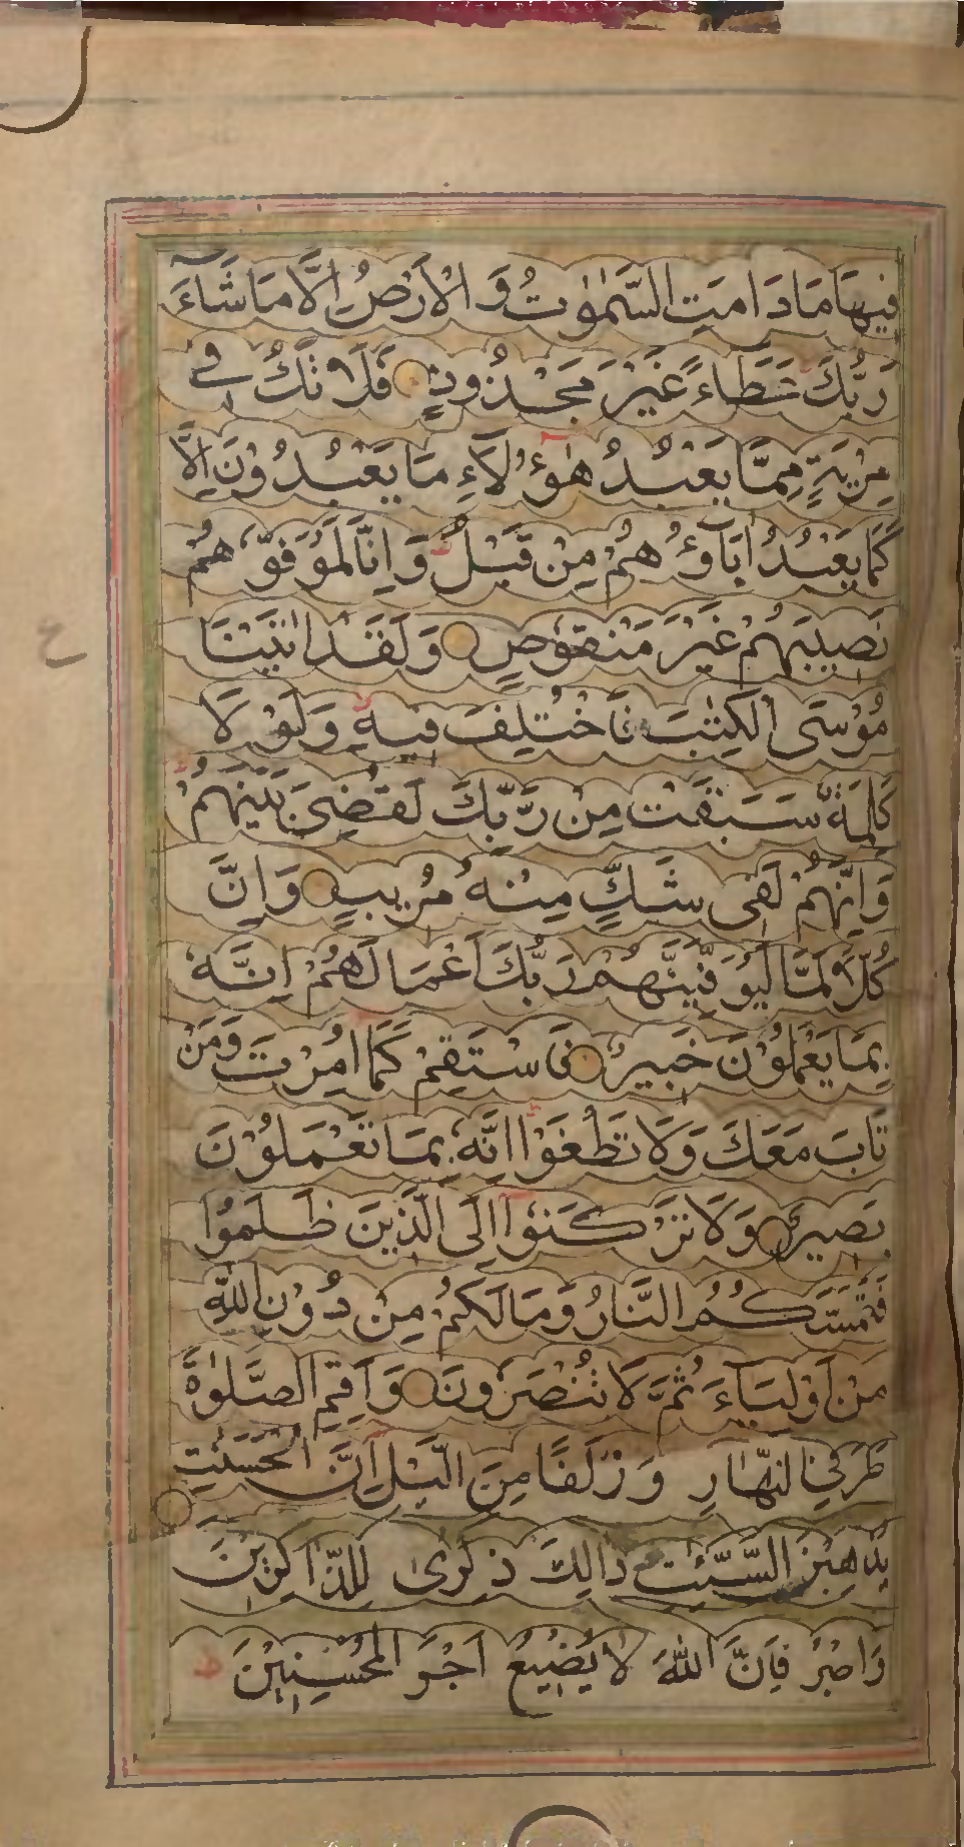 فِيهَا مَا دَامَتِ السَّمٰوٰتُ وَ الْاَرْضُ اِلَّا مَا شَآءَ
رَبُّكَ عَطَآءً غَيْرَ مَجْذُوذٍ فَلَا تَكُ فِي
مِرْيَةٍ مِمَّا يَعْبُدُ هٰٓؤُلَآءِ مَا يَعْبُدُوْنَ اِلَّا
كَمَا يَعْبُدُ اٰبَآؤُهُمْ مِنْ قَبْلُ وَ اِنَّا لَمُوَفُّوْهُمْ
نَصِيْبَهُمْ غَيْرَ مَنْقُوْصٍ وَلَقَدْ اٰتَيْنَا
مُوْسَى الْكِتٰبَ فَاخْتُلِفَ فِيْهِ وَلَوْ لَا
كَلِمَةٌ سَبَقَتْ مِنْ رَّبِّكَ لَقُضِىَ بَيْنَهُمْ
وَاِنَّهُمْ لَفِى شَكٍّ مِنْهُ مُرِيْبٍ وَاِنَّ
كُلًّا لَمَّا لَيُوَفِّيَنَّهُمْ رَبُّكَ اَعْمَالَهُمْ اِنَّهٗ
بِمَا يَعْمَلُوْنَ خَبِيْرٌ فَاسْتَقِمْ كَمَا اُمِرْتَ وَمَنْ
تَابَ مَعَكَ وَلَا تَطْغَوْا اِنَّهٗ بِمَا تَعْمَلُوْنَ
بَصِيْرٌ وَلَا تَرْكَنُوْا اِلَى الَّذِيْنَ ظَلَمُوْا
فَتَمَسَّكُمُ النَّارُ وَمَا لَكُمْ مِنْ دُوْنِ اللّٰهِ
مِنْ اَوْلِيَآءَ ثُمَّ لَا تُنْصَرُوْنَ وَاَقِمِ الصَّلٰوةَ
طَرَفَيِ النَّهَارِ وَ زُلَفًا مِنَ الَّيْلِ اِنَّ الْحَسَنٰتِ
يُذْهِبْنَ السَّيِّئٰتِ ذَالِكَ ذِكْرٰى لِلذَّاكِرِيْنَ
وَاصْبِرْ فَاِنَّ اللّٰهَ لَا يُضِيْعُ اَجْرَ الْمُحْسِنِيْنَ
ع